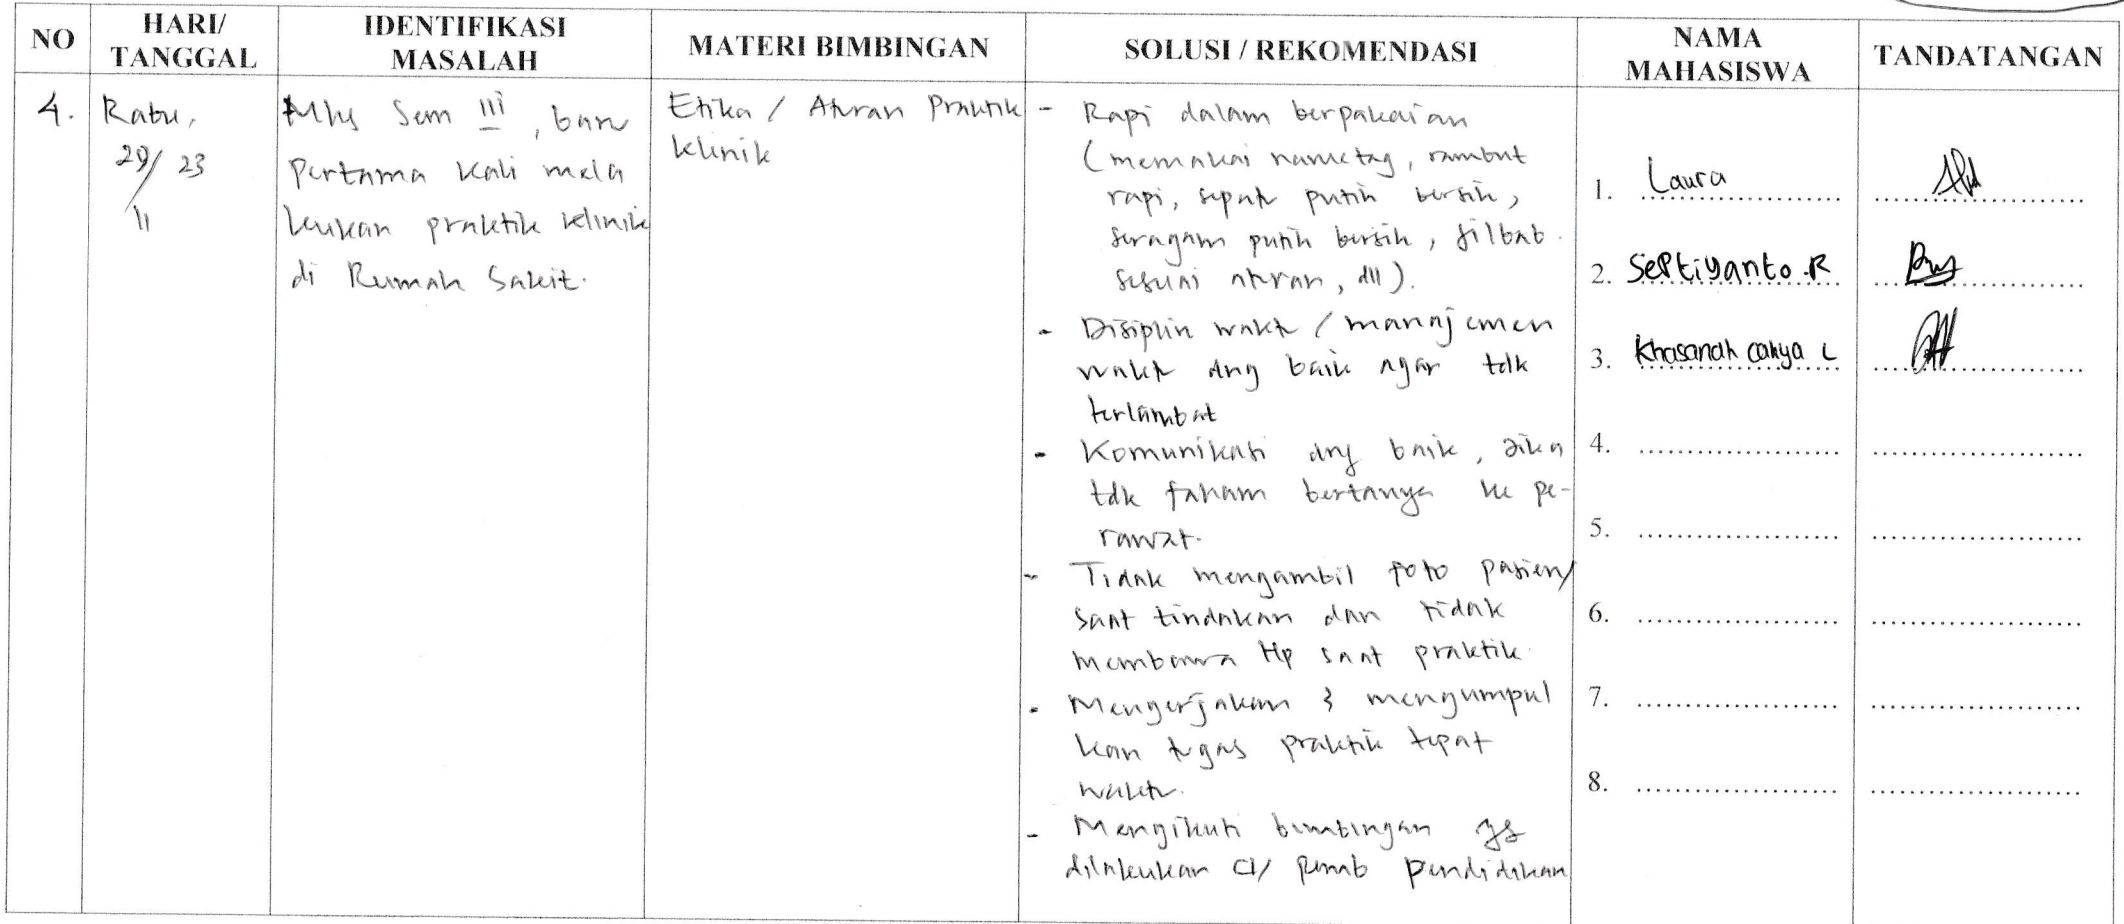 NO
HARI/
TANGGAL
IDENTIFIKASI
MASALAH
MATERI BIMBINGAN
SOLUSI / REKOMENDASI
NAMA
MAHASISWA
TANDATANGAN
4.
Rabu,
29/ 23
11
Mhs Sem III, baru
pertama kali mela
kukan praktik klinik
di Rumah Sakit.
Etika / Aturan Praktik
klinik
- Rapi dalam berpakaian
(memakai nametag, rambut
rapi, sepatu putih bersih,
seragam putih bersih, jilbab
sesuai aturan, dll).
- Disiplin waktu / manajemen
waktu dng baik agar tdk
terlambat
- Komunikasi dng baik, jika
tdk faham bertanya ke pe-
rawat.
- Tidak mengambil foto pasien/
saat tindakan dan tidak
membawa Hp saat praktik.
- Mengerjakan & mengumpul
kan tugas praktik tepat
waktu.
- Mengikuti bimbingan yg
dilakukan CI/ pemb pendidikan
1. Laura
2. Septiyanto.R
3. Khasanah cahya L
4.
5.
6.
7.
8.